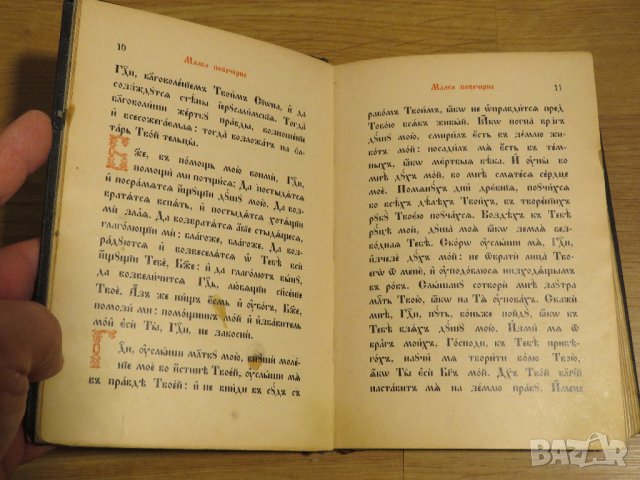 10
Малко повечерие
Гдⷭ҇и, бл҃говоле́нїемъ Твои́мъ Сїѡ́на, и҆ да
сози́ждꙋтся стѣ́ны їерⷭ҇усали́мскїя. Тогда̀
бл҃говоли́ши же́ртвꙋ пра́вды, возноше́нїе
и҆ всесожега́емая: тогда̀ возложа́тъ на ѻ҆л-
та́рь Тво́й тельцы̀.
Бж҃е, въ по́мощь мою̀ вонмѝ. Гдⷭ҇и,
помощѝ ми потщи́ся: Да постыдя́тся
и҆ посра́мятся и҆́щꙋщїи дꙋ́шꙋ мою̀. Да воз-
вратя́тся вспя́ть, и҆ постыдя́тся хотя́щїи
ми̏ зла́я. Да возвратя́тся а҆́бїе стыдя́щеся,
глаго́лющїи ми̏: бла́гоже, бла́гоже. Да воз-
ра́дꙋются и҆ возвеселя́тся ѡ҆ Тебѣ̀ всѝ
и҆́щꙋщїи Тебѐ, Бж҃е: и҆ да глаго́лютъ вы́нꙋ,
да возвели́чится Гдⷭ҇ь, лю́бящїи спⷭ҇се́нїе
Твоѐ. А҆́зъ же ни́щъ є҆́смь и҆ ᲂу҆бо́гъ, Бж҃е,
помозѝ ми̏: помо́щникъ мо́й и҆ и҆зба́витель
мо́й є҆сѝ Ты̀, Гдⷭ҇и, не закоснѝ.
Гдⷭ҇и, ᲂу҆слы́ши мл҃твꙋ мою̀, внꙋшѝ моле́-
нїе моѐ во и҆́стинѣ Твое́й, ᲂу҆слы́ши мѧ̀
въ пра́вдѣ Твое́й: и҆ не вни́ди въ сꙋ́дъ съ
Малко повечерие
11
рабо́мъ Твои́мъ, ꙗ҆́кѡ не ѡ҆правди́тся пред
Тобо́ю вся́къ живы́й. Ꙗ҆́кѡ погна̀ вра́гъ
дꙋ́шꙋ мою̀, смири́лъ є҆́сть въ зе́млю жи-
во́тъ мо́й: посади́лъ мѧ̀ є҆́сть въ те́м-
ныхъ, ꙗ҆́кѡ ме́ртвыя вѣ́ка. И҆ ᲂу҆ны̀ во
мнѣ̀ дꙋ́хъ мо́й, во мнѣ̀ смяте́ся се́рдце
моѐ. Помянꙋ́хъ дни̑ дре́внїя, поꙋчи́хся
во всѣ́хъ дѣ́лѣхъ Твои́хъ, въ творе́нїихъ
рꙋкꙋ̀ Твоє́ю поꙋча́хся. Воздѣ́хъ къ Тебѣ̀
рꙋ́цѣ моѝ: дꙋша̀ моя̀ ꙗ҆́кѡ земля̀ без-
во́дная Тебѣ̀. Ско́рѡ ᲂу҆слы́ши мѧ̀, Гдⷭ҇и,
и҆счезѐ дꙋ́хъ мо́й: не ѿвратѝ лица̀ Твоє-
гѡ̀ ѿ менѐ, и҆ ᲂу҆подо́блюся низходя́щымъ
въ ро́въ. Слы́шанꙋ сотворѝ мнѣ̀ заꙋ́тра
ми́лость Твою̀, ꙗ҆́кѡ на Тѧ̀ ᲂу҆пова́хъ. Скажѝ
мнѣ̀, Гдⷭ҇и, пꙋ́ть, во́ньже пойдꙋ̀, ꙗ҆́кѡ къ
Тебѣ̀ взя́хъ дꙋ́шꙋ мою̀. И҆змѝ мѧ̀ ѿ
вра̑гъ мои́хъ. Го́споди, къ Тебѣ̀ прибѣ-
го́хъ, наꙋчѝ мѧ̀ твори́ти во́лю Твою̀,
ꙗ҆́кѡ Ты̀ є҆сѝ Бг҃ъ мо́й. Дх҃ъ Тво́й бл҃гі́й
наста́витъ мѧ̀ на зе́млю пра́вꙋ. И҆́мене
BAZAR